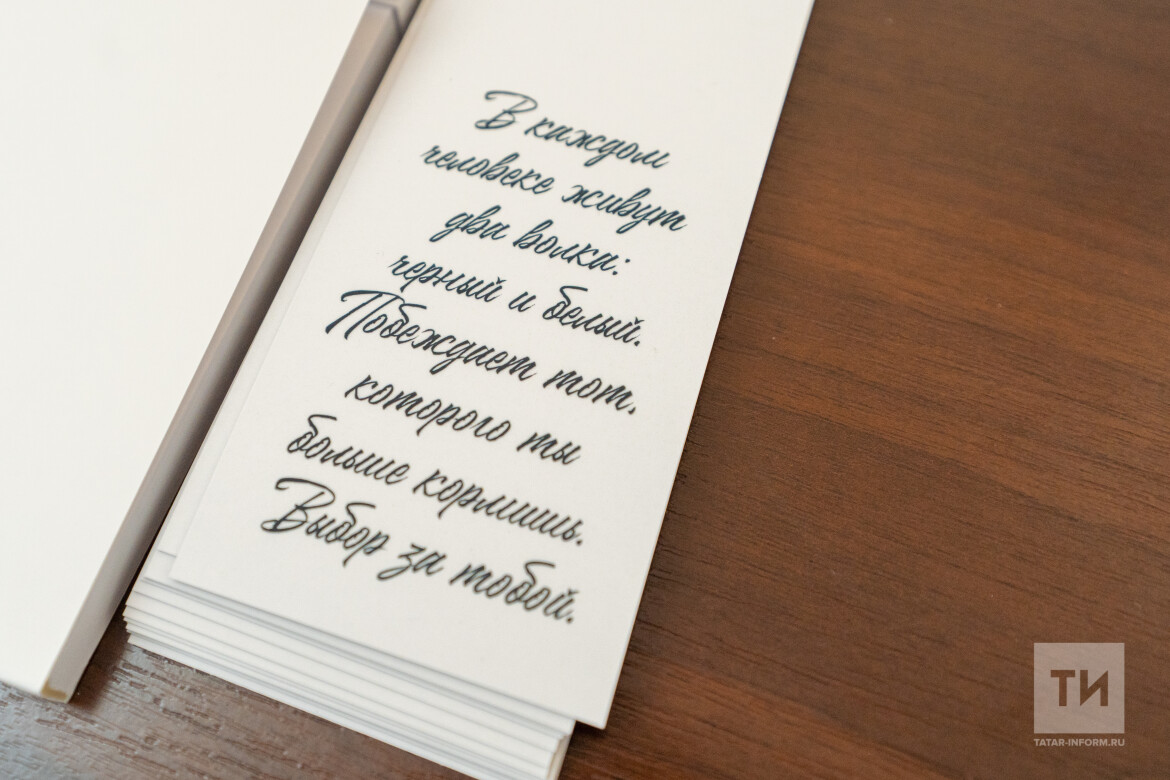 В каждом
человеке живут
два волка:
черный и белый.
Побеждает тот,
которого ты
больше кормишь.
Выбор за тобой.
ТИ
TATAR-INFORM.RU